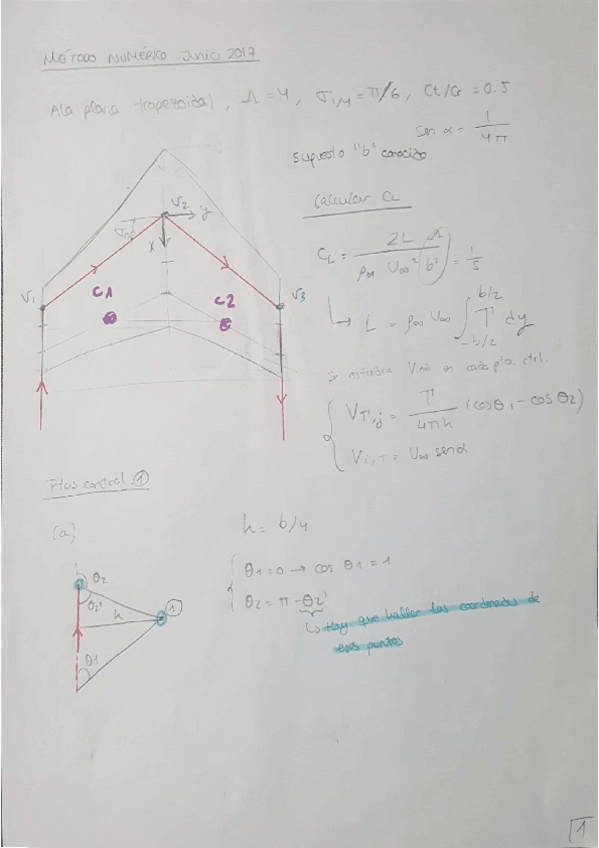 MÉTODO NUMÉRICO Junio 2017
Ala plana trapezoidal, Λ=4, σ1/4=π/6, Ct/Cr=0.5
sen α = 1/4π
Supuesto "b" conocido
Calcular CL
V2
y
x
V1
C1
C2
V3
CL = 2L / ρ∞ U∞² (Λ/b²) = 1/S
L = ρ∞ U∞ ∫ -b/2 b/2 Γ dy
Se estudia en cada pto. ctrl.
VΓ,j = Γ/4πh (cosθ1 - cosθ2)
Vi,T = U∞ senα
Ptos control ①
(a)
h = b/4
θ1=0 → cos θ1=1
θ2 = π - θ2'
↳ Hay que hallar las coordenadas de
esos puntos
θ2
θ2'
h
①
θ1
1